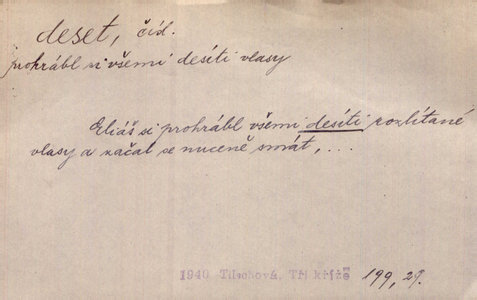 deset, čísl.
prohrábl si všemi desíti vlasy
Eliáš si prohrábl všemi desíti rozlítané
vlasy a začal se nuceně smát, ...
1940 Tilschová, Tři kříže 199, 29.